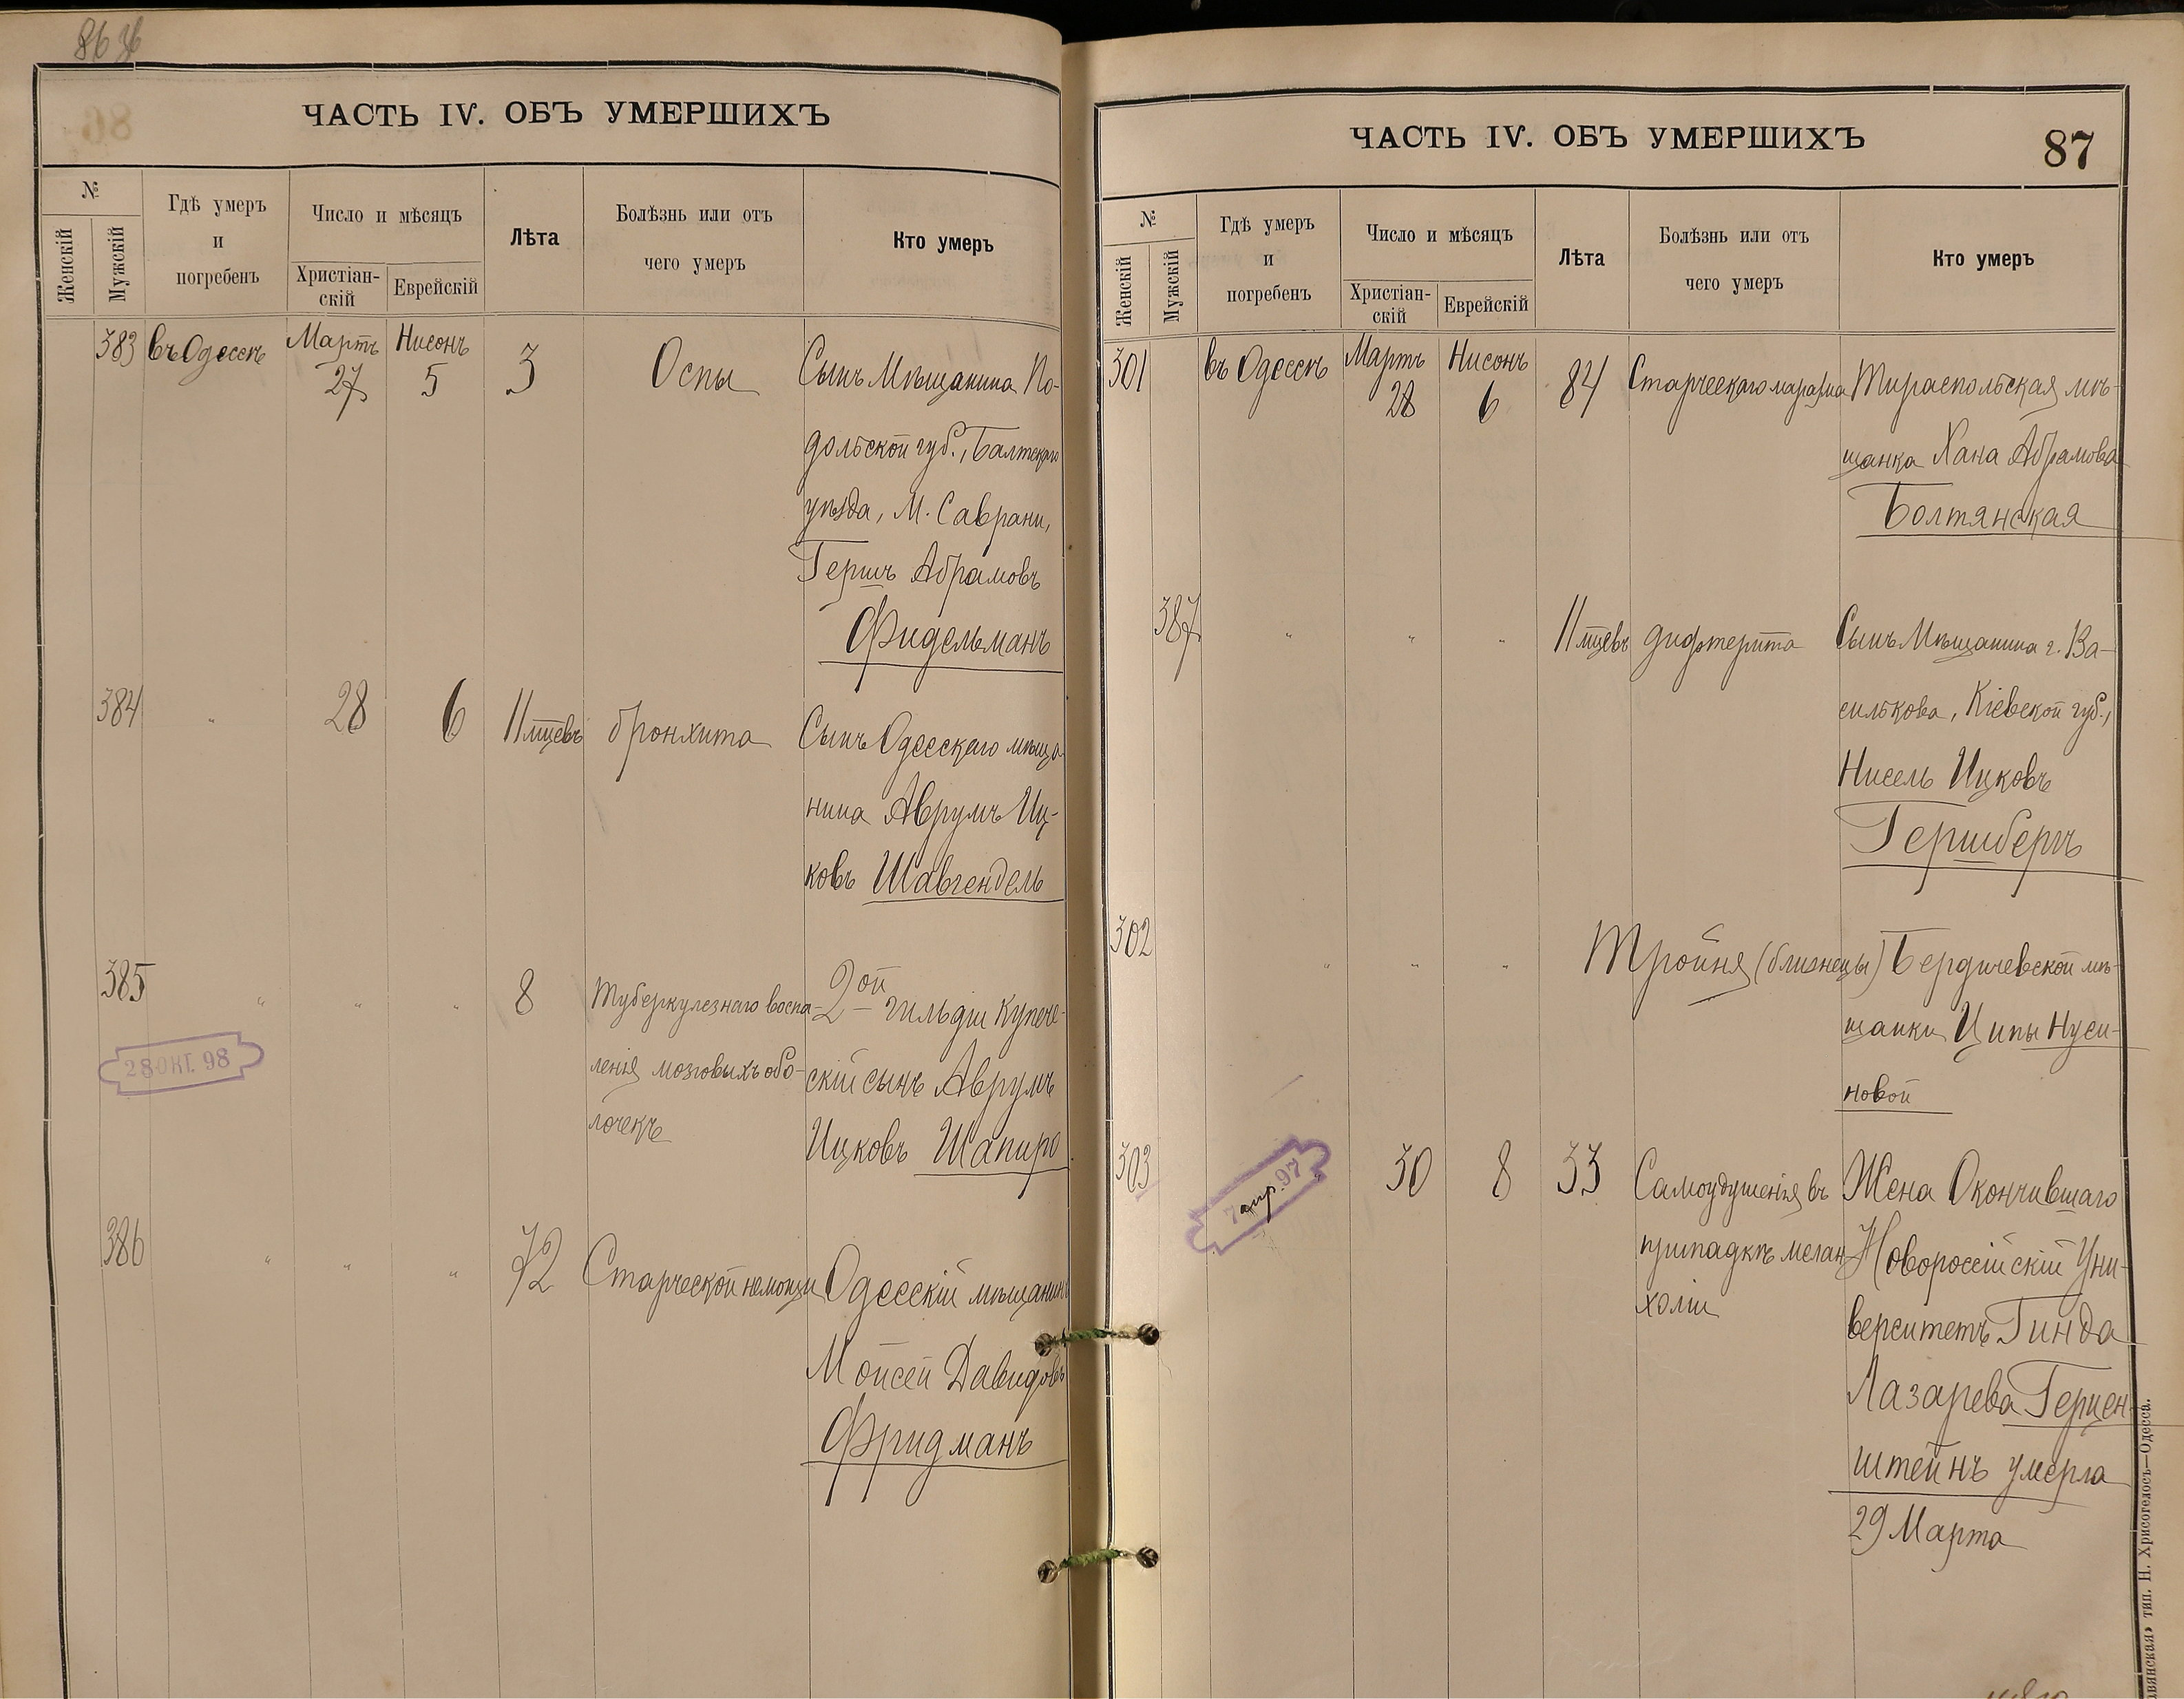 86 об
ЧАСТЬ IV. ОБЪ УМЕРШИХЪ
№
Женскій
Мужскій
Гдѣ умеръ
и
погребенъ
Число и мѣсяцъ
Христіан-
скій
Еврейскій
Лѣта
Болѣзнь или отъ
чего умеръ
Кто умеръ
383 въ Одессѣ Мартъ 27 Нисонъ 5 3 Оспы Сынъ Мѣщанина По-
дольской губ., Балтскаго
уѣзда, М. Саврани,
Гершъ Абрамовъ
Фидельманъ
384 " 28 6 11 мцевъ бронхита Сынъ Одесскаго мѣща-
нина Аврумъ Иц-
ковъ Шавгендель
385 " " " 8 Туберкулезнаго воспа- 2ой гильдіи купече-
ленія мозговыхъ обо- скій сынъ Аврумъ
лочекъ Ицковъ Шапиро
28 ОКТ. 98
386 " " " 72 Старческой немощи Одесскій мѣщанинъ
Мойсей Давидовъ
Фридманъ
ЧАСТЬ IV. ОБЪ УМЕРШИХЪ
87
№
Женскій
Мужскій
Гдѣ умеръ
и
погребенъ
Число и мѣсяцъ
Христіан-
скій
Еврейскій
Лѣта
Болѣзнь или отъ
чего умеръ
Кто умеръ
301 въ Одессѣ Мартъ 28 Нисонъ 6 84 Старческаго маразма Тираспольская мѣ-
щанка Хана Абрамова
Болтянская
387 " " " 11 мцевъ дифтерита Сынъ Мѣщанина г. Ва-
силькова, Кіевской губ.,
Нисель Ицковъ
Гершбергъ
302 " " " Тройня (близнецы) Бердичевской мѣ-
щанки Ципы Нуси-
новой
303 30 8 33 Самоудушенія въ Жена Окончившаго
припадкѣ мелан- Новороссійскій Уни-
холіи верситетъ Гинда
7 апр. 97
Лазарева Герцен-
штейнъ умерла
29 Марта
тип. Н. Хрисогелосъ—Одесса.